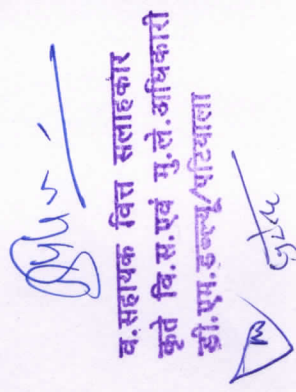 व.सहायक वित्त सलाहकार
कृते वि.स.एवं मु.ले.अधिकारी
डी.एम.डब्ल्यू/पटियाला